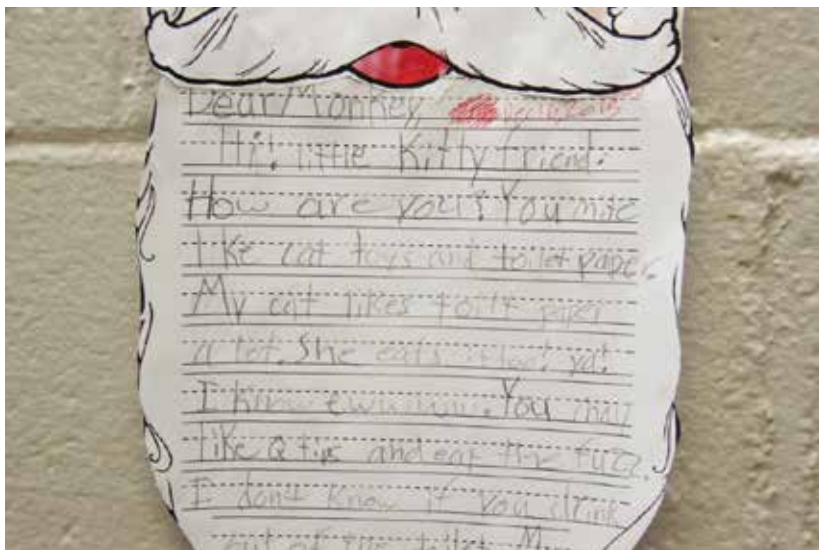 Dear Monkey,
Hi! little Kitty friend.
How are you? You mite
like cat toys and toilet paper.
My cat likes toilt paper
a lot. She eats it too! ya!
I know ewwwww. You
like Q tips and eat the fuzz.
I don't know if you drink
out of the toilet. M